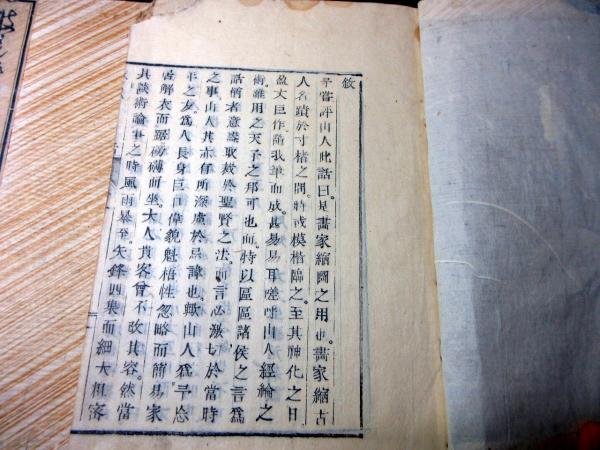 敘
予嘗評山人此話曰是畫家縮圖之用也畫家縮古
人名蹟於寸楮之間時或模楷臨之至其神化之日
盈丈巨作隨我筆而成甚易易耳嗟呼山人經綸之
術雖用之天子之邦可也而特以區區諸侯之言為
話借者意蓋取裁於聖賢之法而言必激切於當時
之事山人其亦有所深慮於忌諱也歟山人為予忘
年之友為人長身巨口偉貌魁梧性忽略而簡易家
居解衣而踞磅礴而坐大人貴客曾不改其容然當
其談術論事之時風雨暴至矢鋒四集而細大相容